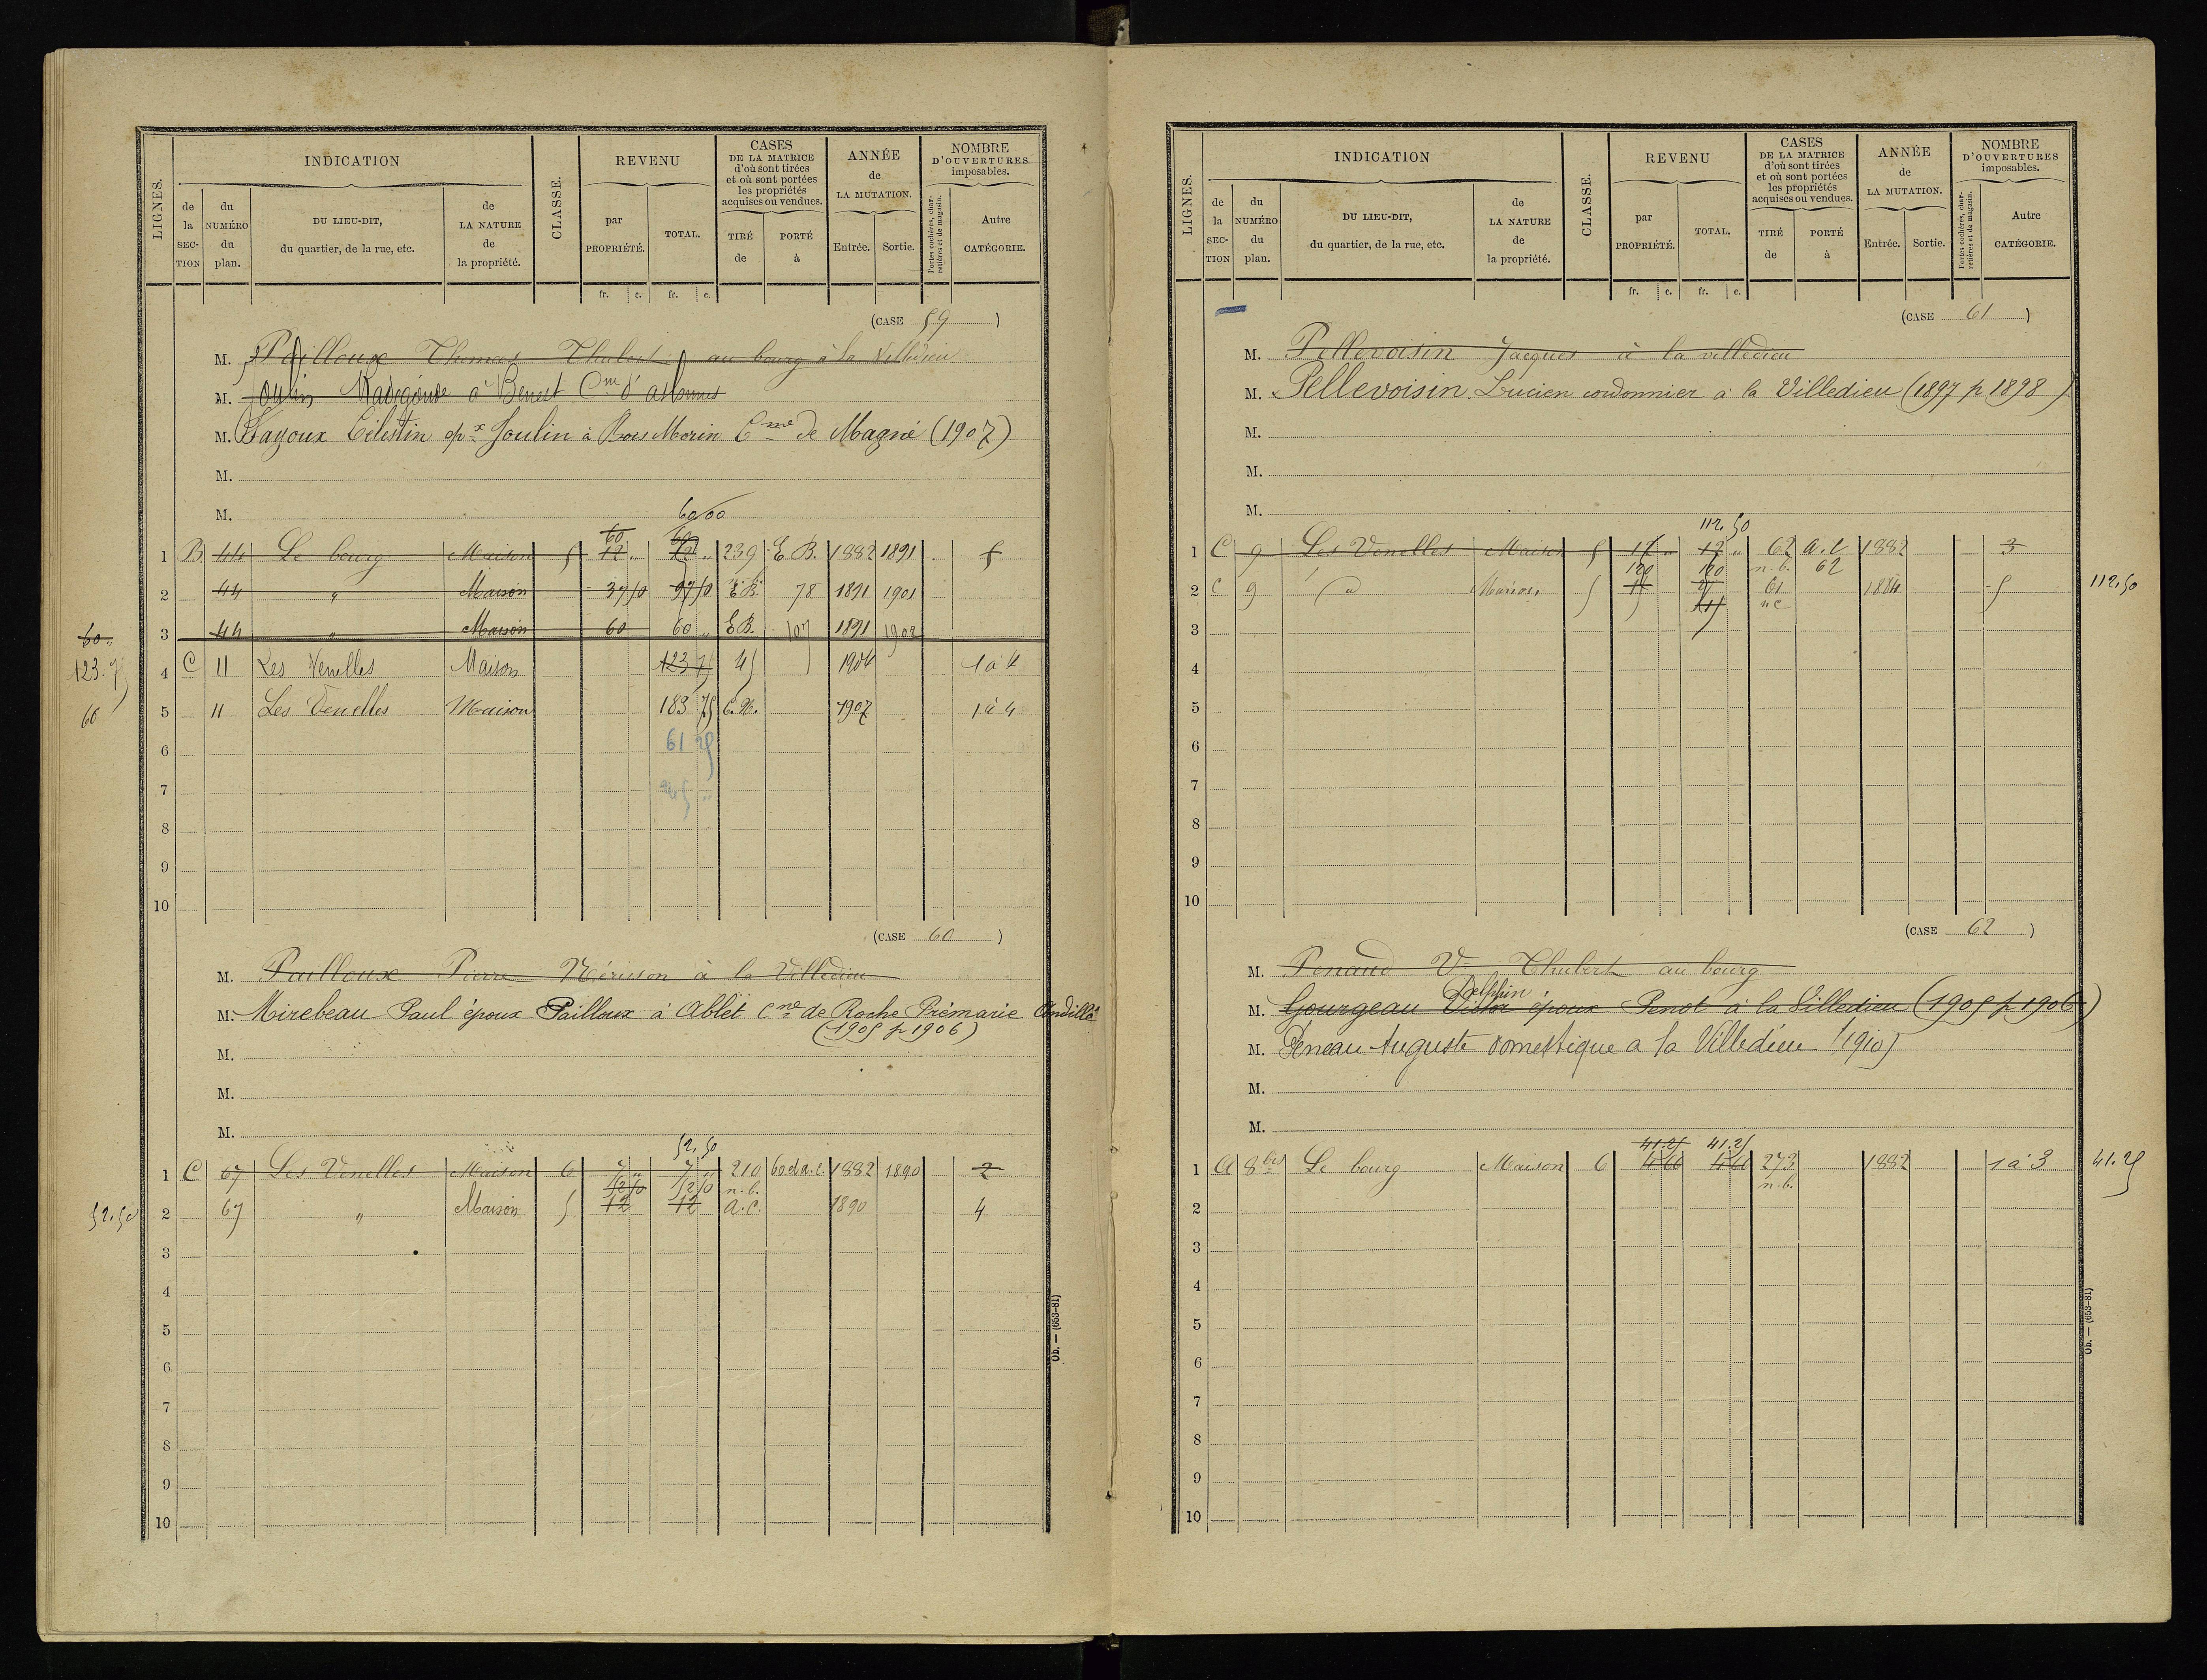 LIGNES. INDICATION CLASSE. REVENU CASES DE LA MATRICE d'où sont tirées et où sont portées les propriétés acquises ou vendues. ANNÉE de LA MUTATION. NOMBRE D'OUVERTURES imposables.
de la SECTION du NUMÉRO du plan. DU LIEU-DIT, du quartier, de la rue, etc. de LA NATURE de la propriété. par PROPRIÉTÉ. TOTAL. TIRÉ de PORTÉ à Entrée. Sortie. Portes cochères, charretières et de magasin. Autre CATÉGORIE.
fr. c. fr. c.
(CASE 59)
M. Pailloux Thomas Thubert au bourg à la Villedieu
M. Joulin Radegonde à Benest Cne d'
M. Sayoux Célestin epx Joulin à Bois Morin Cme de Magné (1907)
M.
M.
60/00
60 60
1 B 44 Le bourg Maison 5 12 " 12 " 239 E B. 1882 1891 5
2 44 " Maison 37 50 97 50 E.B. 78 1891 1901
60 " 3 44 " Maison 60 60 " E B. 107 1891 1902
123.75 4 C 11 Les Venelles Maison 123 75 45 1904 1 à 4
60 5 11 Les Venelles Maison 183 75 C.N. 1907 1 à 4
6 61 25
7 245 "
8
9
10
(CASE 60)
M. Pailloux Pierre Nérisson à la Villedieu
M. Mirebeau Paul époux Pailloux à Ablet Cne de Roche Prémarie Andillé
(1905 p 1906)
M.
M.
M.
52,50
1 C 67 Les Venelles Maison 6 7 " 7 " 210 60 d a.c. 1882 1890 2
52 50 52 50 n.b.
52,50 2 67 " Maison 5 12 12 a.c. 1890 4
3
4
5
6
7
8
9
10
Ob. — (653-81)
LIGNES. INDICATION CLASSE. REVENU CASES DE LA MATRICE d'où sont tirées et où sont portées les propriétés acquises ou vendues. ANNÉE de LA MUTATION. NOMBRE D'OUVERTURES imposables.
de la SECTION du NUMÉRO du plan. DU LIEU-DIT, du quartier, de la rue, etc. de LA NATURE de la propriété. par PROPRIÉTÉ. TOTAL. TIRÉ de PORTÉ à Entrée. Sortie. Portes cochères, charretières et de magasin. Autre CATÉGORIE.
fr. c. fr. c.
(CASE 61)
M. Pellevoisin Jacques à la villedieu
M. Pellevoisin Lucien cordonnier à la Villedieu (1897 p 1898)
M.
M.
M.
112,50
1 C 9 Les Venelles Maison 5 12 " 12 " 62 a.c 1882 3
120 120 n.b. 62
2 C 9 d Maison 5 61 1884 5 112,50
n c
3
4
5
6
7
8
9
10
(CASE 62)
M. Penaud Ve Thubert au bourg
Delphin
M. Gourgeau Victor époux Penot à la Villedieu (1905 p 1906)
M. Peneau Auguste domestique a la Villedieu (1910)
M.
M.
41.25 41.25
1 A 8 bis Le bourg Maison 6 273 1882 1 à 3 41.25
n.b.
2
3
4
5
6
7
8
9
10
Ob. — (653-81)